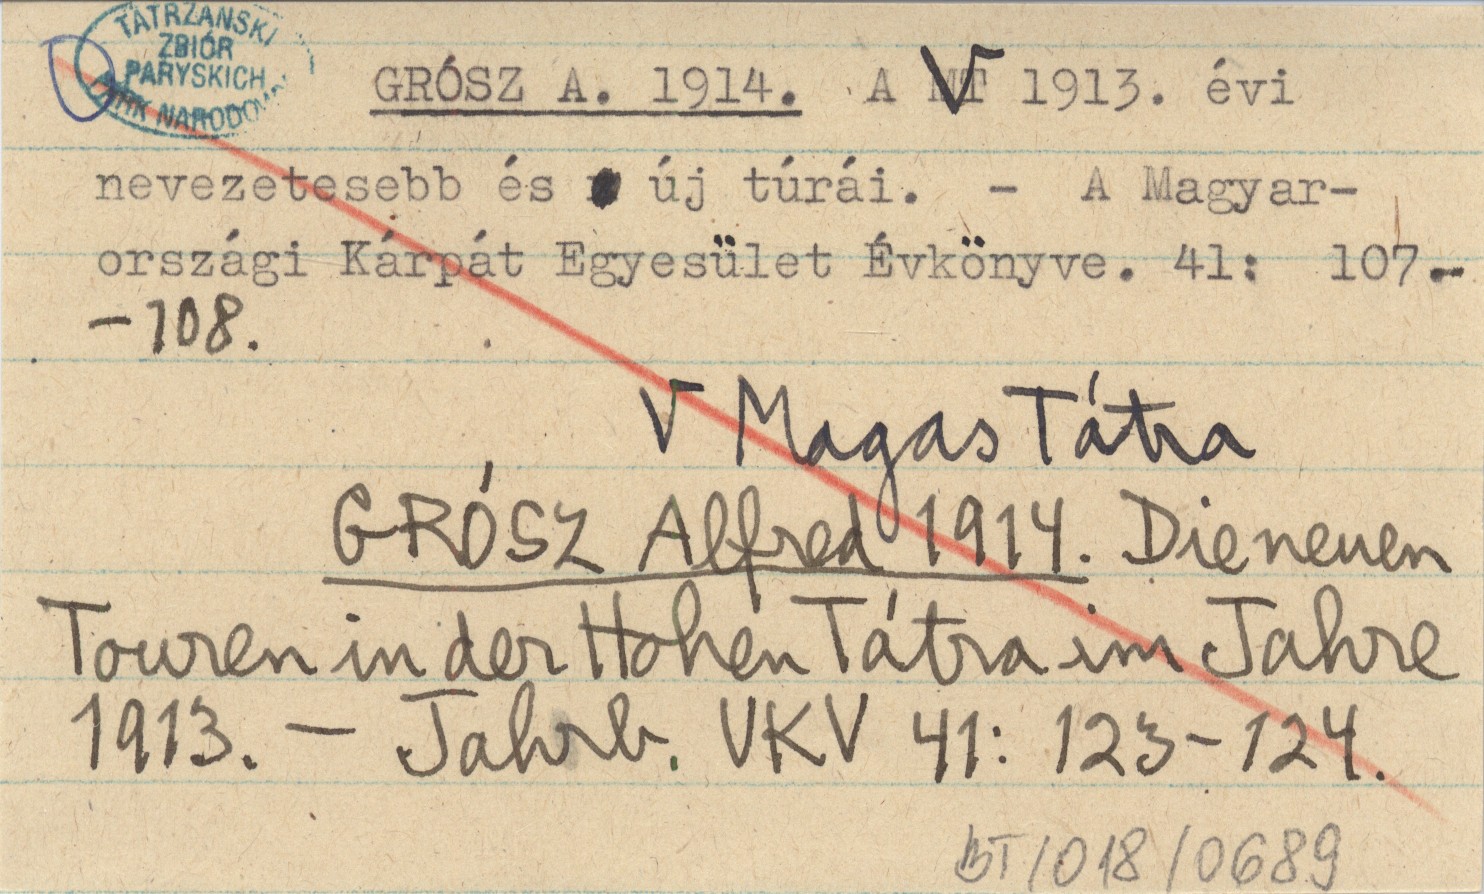 TATRZAŃSKI
ZBIÓR
PARYSKICH
PARK NARODOWY
GRÓSZ A. 1914. A V 1913. évi
nevezetesebb és új túrái. - A Magyar-
országi Kárpát Egyesület Évkönyve. 41: 107.-
-108.
V Magas Tátra
GRÓSZ Alfred 1914. Die neuen
Touren in der Hohen Tátra im Jahre
1913. - Jahrb. UKV 41: 123-124.
BT/018/0689